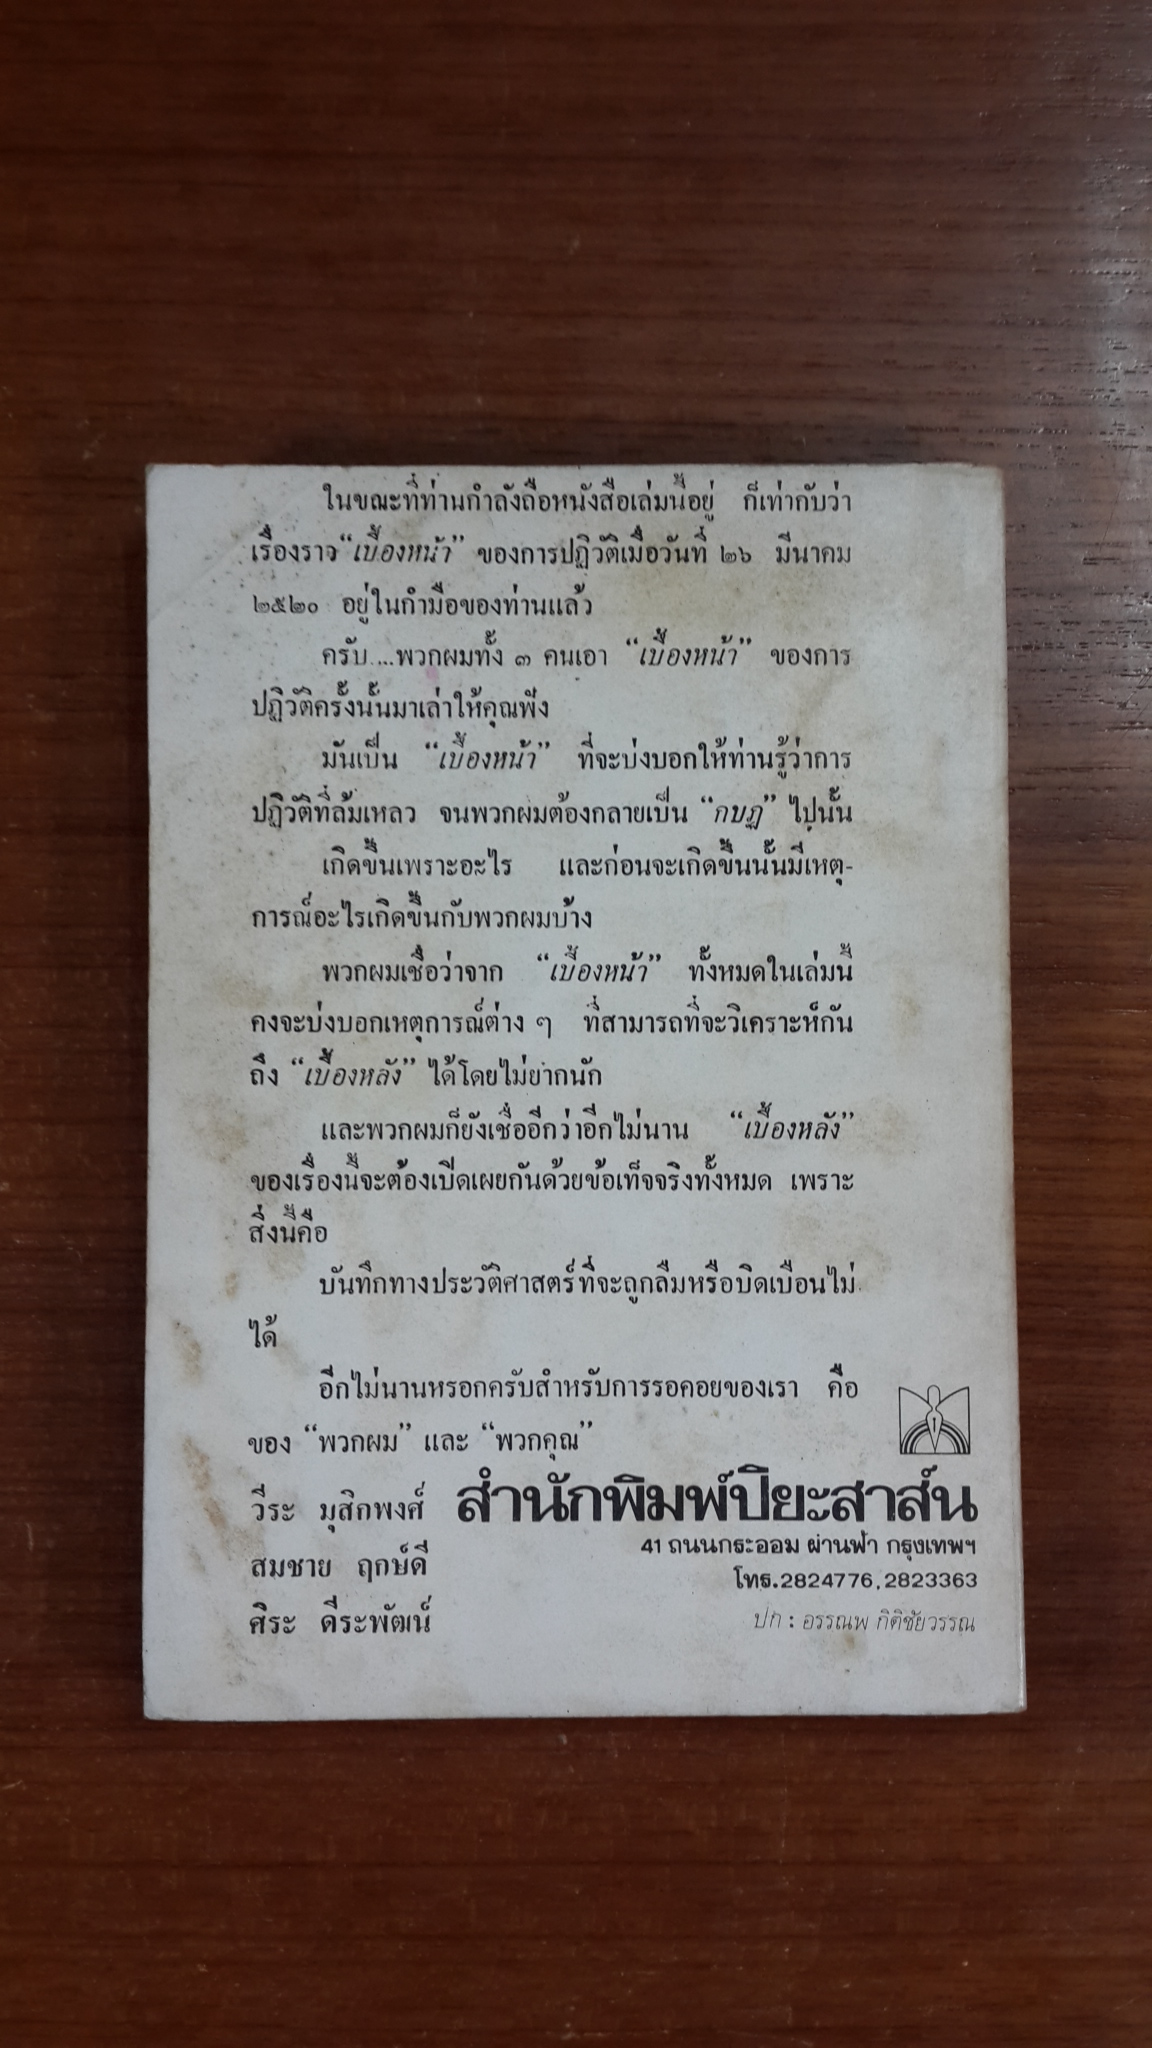 ในขณะที่ท่านกำลังถือหนังสือเล่มนี้อยู่ ก็เท่ากับว่า
เรื่องราว “เบื้องหน้า” ของการปฏิวัติเมื่อวันที่ ๒๖ มีนาคม
๒๕๒๐ อยู่ในกำมือของท่านแล้ว
ครับ....พวกผมทั้ง ๓ คนเอา “เบื้องหน้า” ของการ
ปฏิวัติครั้งนั้นมาเล่าให้คุณฟัง
มันเป็น “เบื้องหน้า” ที่จะบ่งบอกให้ท่านรู้ว่าการ
ปฏิวัติที่ล้มเหลว จนพวกผมต้องกลายเป็น “กบฏ” ไปนั้น
เกิดขึ้นเพราะอะไร และก่อนจะเกิดขึ้นนั้นมีเหตุ-
การณ์อะไรเกิดขึ้นกับพวกผมบ้าง
พวกผมเชื่อว่าจาก “เบื้องหน้า” ทั้งหมดในเล่มนี้
คงจะบ่งบอกเหตุการณ์ต่าง ๆ ที่สามารถที่จะวิเคราะห์กัน
ถึง “เบื้องหลัง” ได้โดยไม่ยากนัก
และพวกผมก็ยังเชื่ออีกว่าอีกไม่นาน “เบื้องหลัง”
ของเรื่องนี้จะต้องเปิดเผยกันด้วยข้อเท็จจริงทั้งหมด เพราะ
สิ่งนี้คือ
บันทึกทางประวัติศาสตร์ที่จะถูกลืมหรือบิดเบือนไม่
ได้
อีกไม่นานหรอกครับสำหรับการรอคอยของเรา คือ
ของ “พวกผม” และ “พวกคุณ”
วีระ มุสิกพงศ์
สมชาย ฤกษ์ดี
ศิระ ดีระพัฒน์
สำนักพิมพ์ปิยะสาส์น
41 ถนนกระออม ผ่านฟ้า กรุงเทพฯ
โทร.2824776, 2823363
ปก : อรรณพ กิติชัยวรรณ